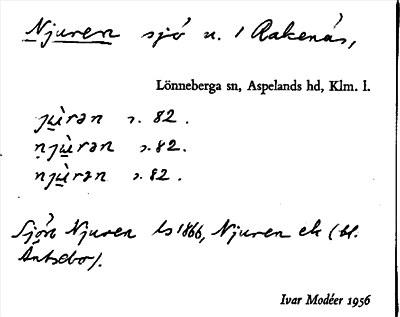 Njuren sjö n. / Rakenäs,
Lönneberga sn, Aspelands hd, Klm. l.
jùrən s. 82.
njùrən s. 82.
njùrən s. 82.
Sjön Njuren Ls 1866, Njuren ek (bl.
Äntsebo).
Ivar Modéer 1956